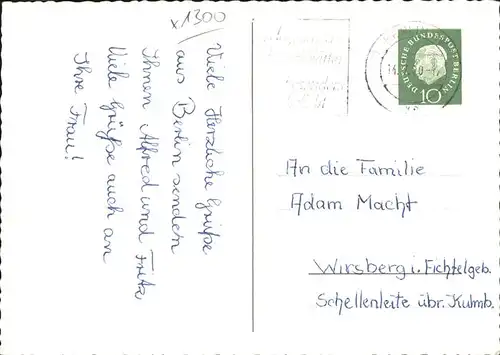 x1300
Viele Herzliche Grüße
aus Berlin senden
Ihnen Alfred und Fritz
Viele Grüße auch an
Ihre Frau!
DEUTSCHE BUNDESPOST BERLIN
10
An die Familie
Adam Macht
Wirsberg i. Fichtelgeb.
Schellenleite übr. Kulmb.